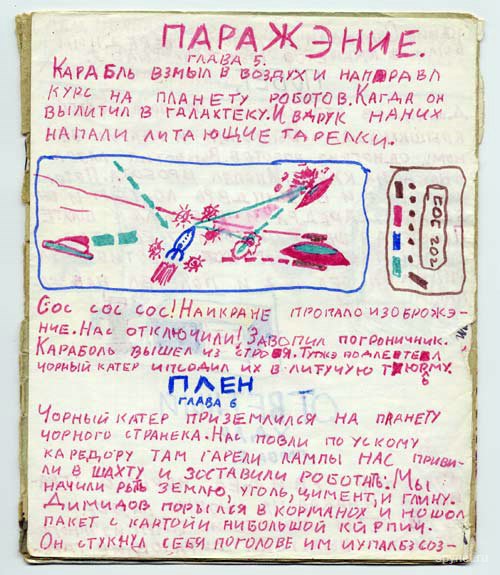 ПАРАЖЭНИЕ.
ГЛАВА 5.
КАРАБЛЬ ВЗМЫЛ В ВОЗДУХ И НАПОРАВЛ
КУРС НА ПЛАНЕТУ РОБОТОВ. КАГДА ОН
ВЫЛИТИЛ В ГАЛАХТЕКУ. И ВДРУК НАНИХ
НАПАЛИ ЛИТАЮЩИЕ ТАРЕЛКИ.
СОС СОС СОС! НАИКРАНЕ ПРОПАЛО ИЗОБРОЖЭ-
НИЕ. НАС ОТКЛЮЧИЛИ! ЗАВОПИЛ ПОГРОНИЧНИК.
КАРАБОЛЬ ВЫШЕЛ ИЗ СТРОЯ. ТУТЖЭ
ЧОРНЫЙ КАТЕР ИПСОДИЛ ИХ В ЛИТУЧУЮ ТЮРМУ.
ПЛЕН
ГЛАВА 6
ЧОРНЫЙ КАТЕР ПРИЗЕМЛИЛСЯ НА ПЛАНЕТУ
ЧОРНОГО СТРАНЕКА. НАС ПОВЛИ ПО УСКОМУ
КАРЕДОРУ ТАМ ГАРЕЛИ ЛАМПЫ НАС ПРИВИ-
ЛИ В ШАХТУ И ЗОСТАВИЛИ РОБОТАТЬ. МЫ
НАЧИЛИ РЫТЬ ЗЕМЛЮ, УГОЛЬ, ЦИМЕНТ, И ГЛИНУ.
ДИМИДОВ ПОРЫЛСЯ В КОРМАНОХ И НОШОЛ
ПАКЕТ С КАРТОЙ И НИБОЛЬШОЙ КИРПИЧ.
ОН СТУКНУЛ СЕБЯ ПОГОЛОВЕ ИМ ИУПАЛБЭСОЗ-
spynet.ru